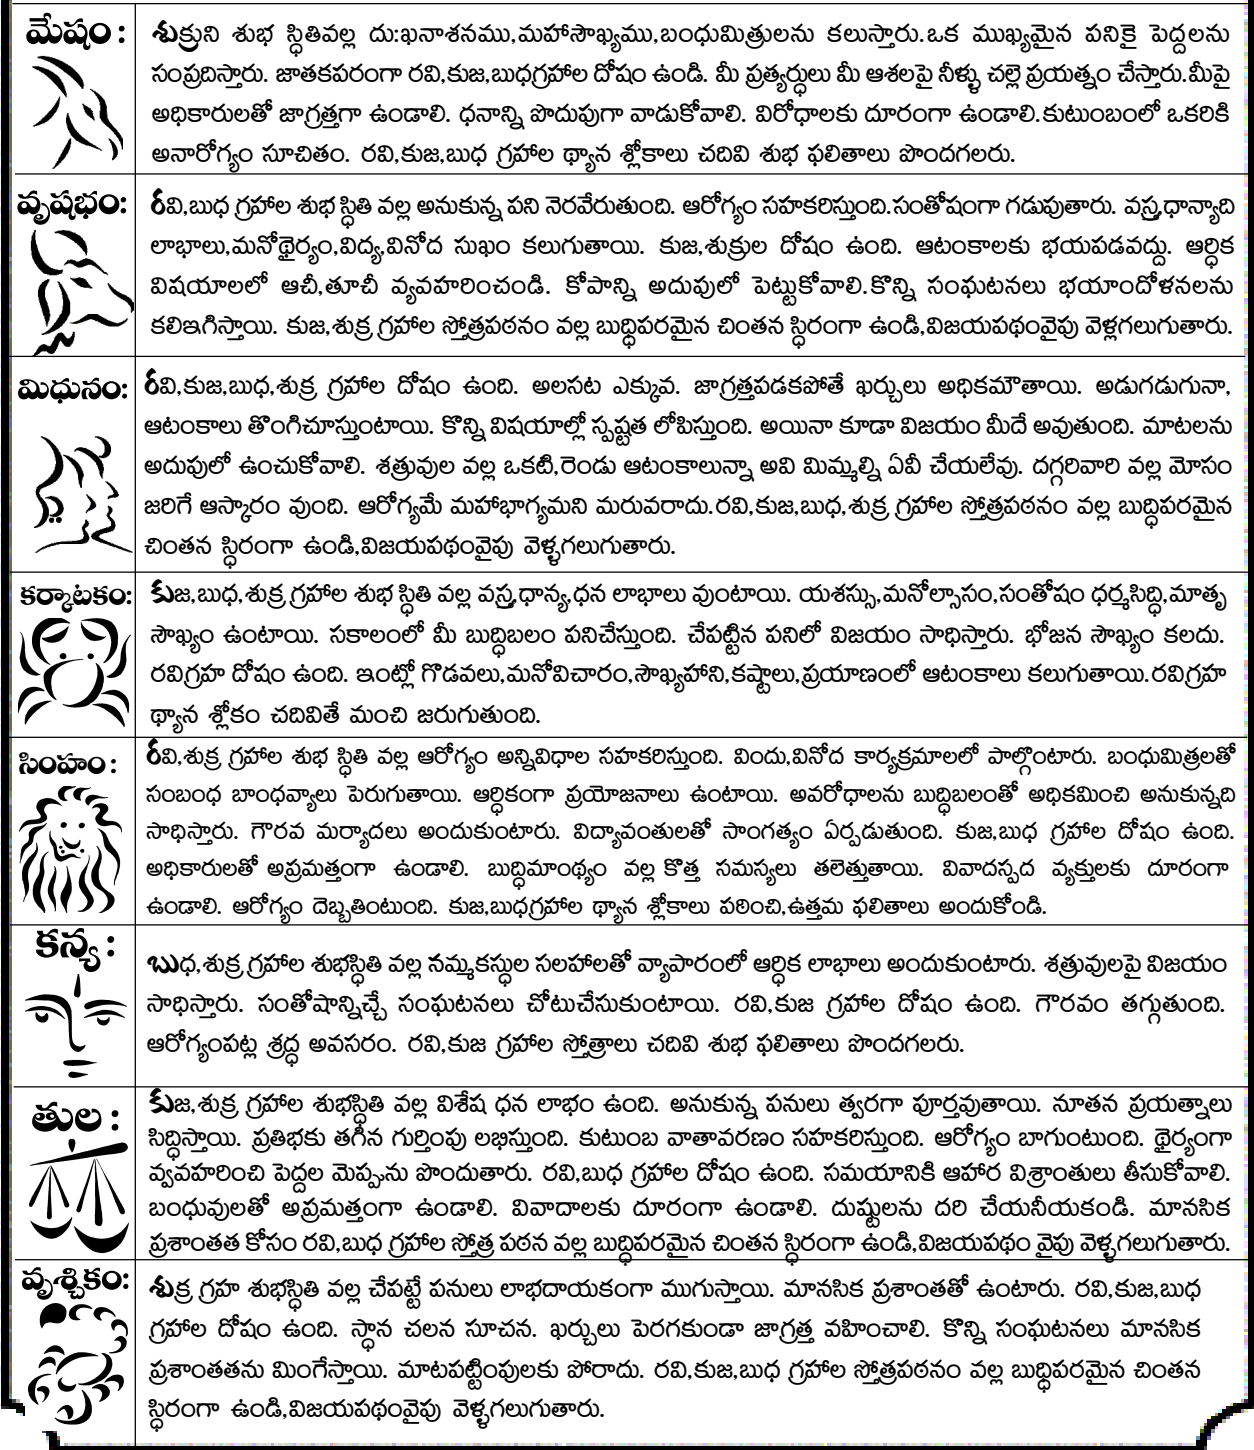 మేషం :
శుక్రుని శుభ స్థితివల్ల దు:ఖనాశనము,మహాసౌఖ్యము,బంధుమిత్రులను కలుస్తారు.ఒక ముఖ్యమైన పనికై పెద్దలను
సంప్రదిస్తారు. జాతకపరంగా రవి,కుజ,బుధగ్రహాల దోషం ఉండి. మీ ప్రత్యర్థులు మీ ఆశలపై నీళ్ళు చల్లె ప్రయత్నం చేస్తారు.మీపై
అధికారులతో జాగ్రత్తగా ఉండాలి. ధనాన్ని పొదుపుగా వాడుకోవాలి. విరోధాలకు దూరంగా ఉండాలి.కుటుంబంలో ఒకరికి
అనారోగ్యం సూచితం. రవి,కుజ,బుధ గ్రహాల థ్యాన శ్లోకాలు చదివి శుభ ఫలితాలు పొందగలరు.
వృషభం:
రవి,బుధ గ్రహాల శుభ స్థితి వల్ల అనుకున్న పని నెరవేరుతుంది. ఆరోగ్యం సహకరిస్తుంది.సంతోషంగా గడుపుతారు. వస్త్ర,ధాన్యాది
లాభాలు,మనోథైర్యం,విద్య,వినోద సుఖం కలుగుతాయి. కుజ,శుక్రుల దోషం ఉంది. ఆటంకాలకు భయపడవద్దు. ఆర్థిక
విషయాలలో ఆచీ,తూచీ వ్యవహరించండి. కోపాన్ని అదుపులో పెట్టుకోవాలి.కొన్ని సంఘటనలు భయాందోళనలను
కలిఇగిస్తాయి. కుజ,శుక్ర గ్రహాల స్తోత్రపఠనం వల్ల బుద్ధిపరమైన చింతన స్థిరంగా ఉండి,విజయపథంవైపు వెళ్లగలుగుతారు.
మిధునం:
రవి,కుజ,బుధ,శుక్ర గ్రహాల దోషం ఉంది. అలసట ఎక్కువ. జాగ్రత్తపడకపోతే ఖర్చులు అధికమౌతాయి. అడుగడుగునా,
ఆటంకాలు తొంగిచూస్తుంటాయి. కొన్ని విషయాల్లో స్పష్టత లోపిస్తుంది. అయినా కూడా విజయం మీదే అవుతుంది. మాటలను
అదుపులో ఉంచుకోవాలి. శత్రువుల వల్ల ఒకటి,రెండు ఆటంకాలున్నా అవి మిమ్మల్ని ఏవీ చేయలేవు. దగ్గరివారి వల్ల మోసం
జరిగే ఆస్కారం వుంది. ఆరోగ్యమే మహాభాగ్యమని మరువరాదు.రవి,కుజ,బుధ,శుక్ర గ్రహాల స్తోత్రపఠనం వల్ల బుద్ధిపరమైన
చింతన స్థిరంగా ఉండి,విజయపథంవైపు వెళ్ళగలుగుతారు.
కర్కాటకం:
కుజ,బుధ,శుక్ర గ్రహాల శుభ స్థితి వల్ల వస్త్ర,ధాన్య,ధన లాభాలు వుంటాయి. యశస్సు,మనోల్సాసం,సంతోషం ధర్మసిద్ధి,మాతృ
సౌఖ్యం ఉంటాయి. సకాలంలో మీ బుద్ధిబలం పనిచేస్తుంది. చేపట్టిన పనిలో విజయం సాధిస్తారు. భోజన సౌఖ్యం కలదు.
రవిగ్రహ దోషం ఉంది. ఇంట్లో గొడవలు,మనోవిచారం,సౌఖ్యహాని,కష్టాలు,ప్రయాణంలో ఆటంకాలు కలుగుతాయి.రవిగ్రహ
థ్యాన శ్లోకం చదివితే మంచి జరుగుతుంది.
సింహం :
రవి,శుక్ర గ్రహాల శుభ స్థితి వల్ల ఆరోగ్యం అన్నివిధాల సహకరిస్తుంది. విందు,వినోద కార్యక్రమాలలో పాల్గొంటారు. బంధుమిత్రలతో
సంబంధ బాంధవ్యాలు పెరుగుతాయి. ఆర్థికంగా ప్రయోజనాలు ఉంటాయి. అవరోధాలను బుద్ధిబలంతో అధికమించి అనుకున్నది
సాధిస్తారు. గౌరవ మర్యాదలు అందుకుంటారు. విద్యావంతులతో సాంగత్యం ఏర్పడుతుంది. కుజ,బుధ గ్రహాల దోషం ఉంది.
అధికారులతో అప్రమత్తంగా ఉండాలి. బుద్ధిమాంథ్యం వల్ల కొత్త సమస్యలు తలెత్తుతాయి. వివాదస్పద వ్యక్తులకు దూరంగా
ఉండాలి. ఆరోగ్యం దెబ్బతింటుంది. కుజ,బుధగ్రహాల థ్యాన శ్లోకాలు పఠించి,ఉత్తమ ఫలితాలు అందుకోండి.
కన్య :
బుధ,శుక్ర గ్రహాల శుభస్థితి వల్ల నమ్మకస్థుల సలహాలతో వ్యాపారంలో ఆర్థిక లాభాలు అందుకుంటారు. శత్రువులపై విజయం
సాధిస్తారు. సంతోషాన్నిచ్చే సంఘటనలు చోటుచేసుకుంటాయి. రవి,కుజ గ్రహాల దోషం ఉంది. గౌరవం తగ్గుతుంది.
ఆరోగ్యంపట్ల శ్రద్ధ అవసరం. రవి,కుజ గ్రహాల స్తోత్రాలు చదివి శుభ ఫలితాలు పొందగలరు.
తుల :
కుజ,శుక్ర గ్రహాల శుభస్థితి వల్ల విశేష ధన లాభం ఉంది. అనుకున్న పనులు త్వరగా పూర్తవుతాయి. నూతన ప్రయత్నాలు
సిద్ధిస్తాయి. ప్రతిభకు తగిన గుర్తింపు లభిస్తుంది. కుటుంబ వాతావరణం సహకరిస్తుంది. ఆరోగ్యం బాగుంటుంది. థైర్యంగా
వ్వవహరించి పెద్దల మెప్పును పొందుతారు. రవి,బుధ గ్రహాల దోషం ఉంది. సమయానికి ఆహార విశ్రాంతులు తీసుకోవాలి.
బంధువులతో అప్రమత్తంగా ఉండాలి. వివాదాలకు దూరంగా ఉండాలి. దుష్టులను దరి చేయనీయకండి. మానసిక
ప్రశాంతత కోసం రవి,బుధ గ్రహాల స్తోత్ర పఠన వల్ల బుద్ధిపరమైన చింతన స్థిరంగా ఉండి,విజయపథం వైపు వెళ్ళగలుగుతారు.
వృశ్చికం:
శుక్ర గ్రహ శుభస్థితి వల్ల చేపట్టే పనులు లాభదాయకంగా ముగుస్తాయి. మానసిక ప్రశాంతతో ఉంటారు. రవి,కుజ,బుధ
గ్రహాల దోషం ఉంది. స్థాన చలన సూచన. ఖర్చులు పెరగకుండా జాగ్రత్త వహించాలి. కొన్ని సంఘటనలు మానసిక
ప్రశాంతతను మింగేస్తాయి. మాటపట్టింపులకు పోరాదు. రవి,కుజ,బుధ గ్రహాల స్తోత్రపఠనం వల్ల బుద్ధిపరమైన చింతన
స్థిరంగా ఉండి,విజయపథంవైపు వెళ్ళగలుగుతారు.